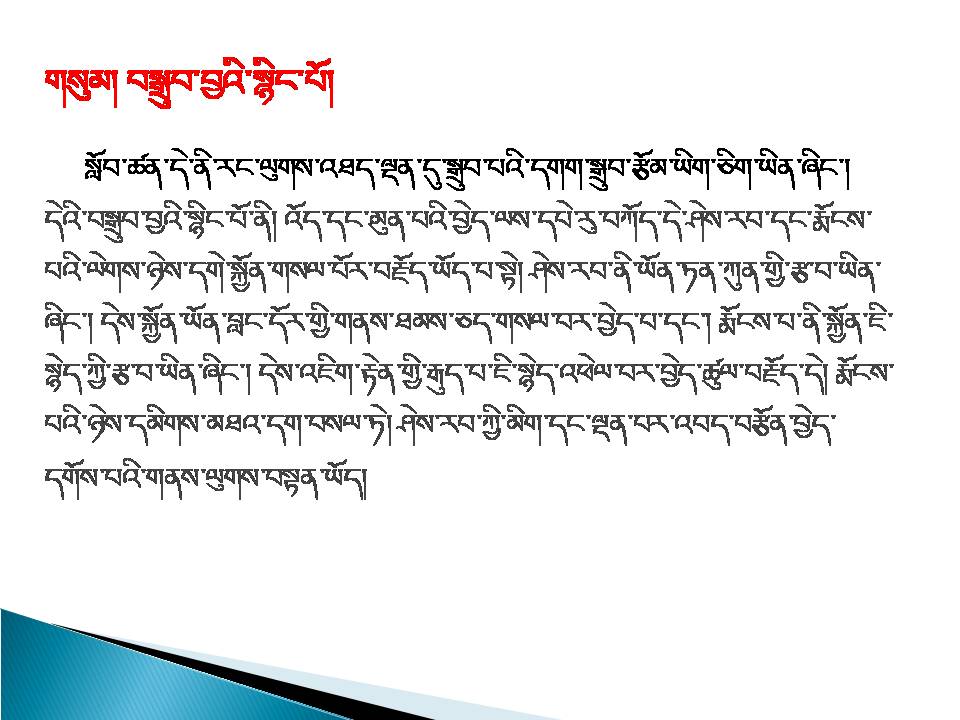 གསུམ། བསྒྲུབ་བྱའི་སྙིང་པོ།
སློབ་ཚན་དེ་ནི་རང་ལུགས་འཐད་ལྡན་དུ་སྒྲུབ་པའི་དགག་སྒྲུབ་རྩོམ་ཡིག་ཅིག་ཡིན་ཞིང་།
དེའི་བསྒྲུབ་བྱའི་སྙིང་པོ་ནི། འོད་དང་མུན་པའི་བྱེད་ལས་དཔེ་རུ་བཀོད་དེ་ཤེས་རབ་དང་རྨོངས་
པའི་ལེགས་ཉེས་དགེ་སྐྱོན་གསལ་པོར་བརྗོད་ཡོད་པ་སྟེ། ཤེས་རབ་ནི་ཡོན་ཏན་ཀུན་གྱི་རྩ་བ་ཡིན་
ཞིང་། དེས་སྐྱོན་ཡོན་བླང་དོར་གྱི་གནས་ཐམས་ཅད་གསལ་བར་བྱེད་པ་དང་། རྨོངས་པ་ནི་སྐྱོན་ཇི་
སྙེད་ཀྱི་རྩ་བ་ཡིན་ཞིང་། དེས་འཇིག་རྟེན་གྱི་རྒུད་པ་ཇི་སྙེད་འཕེལ་བར་བྱེད་ཚུལ་བརྗོད་དེ། རྨོངས་
པའི་ཉེས་དམིགས་མཐའ་དག་བསལ་ཏེ། ཤེས་རབ་ཀྱི་མིག་དང་ལྡན་པར་འབད་བརྩོན་བྱེད་
དགོས་པའི་གནས་ལུགས་བསྟན་ཡོད།